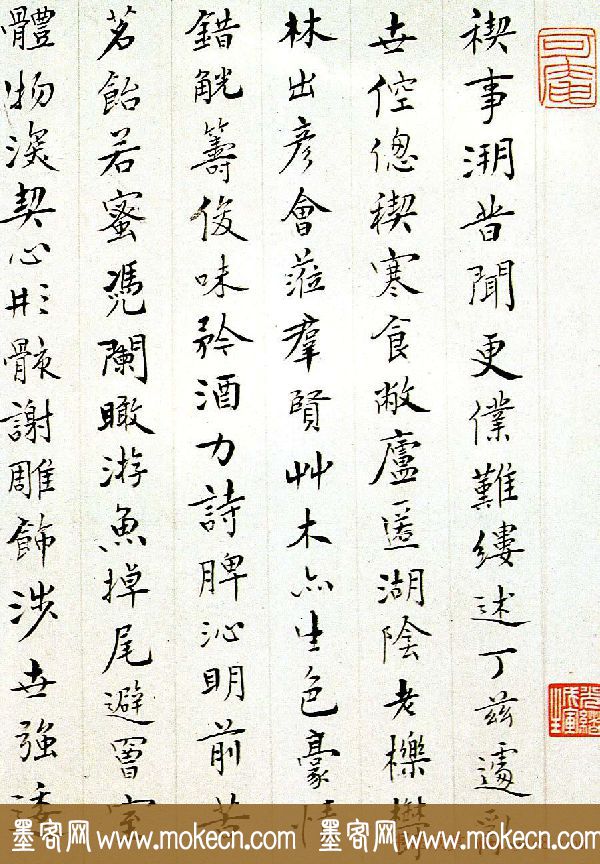 禊事溯昔聞更僕難縷述丁茲遘
世倥傯稧寒食敝廬匿湖陰老櫟
林出彥會蒞羣賢艸木亦生色豪情
錯觥籌俊味矜酒力詩脾沁明前
茗飴若蜜凭闌瞰游魚掉尾避罾
體物深契心形骸謝雕飾涉世強
墨客网 www.mokecn.com 墨客网 www.mokecn.com